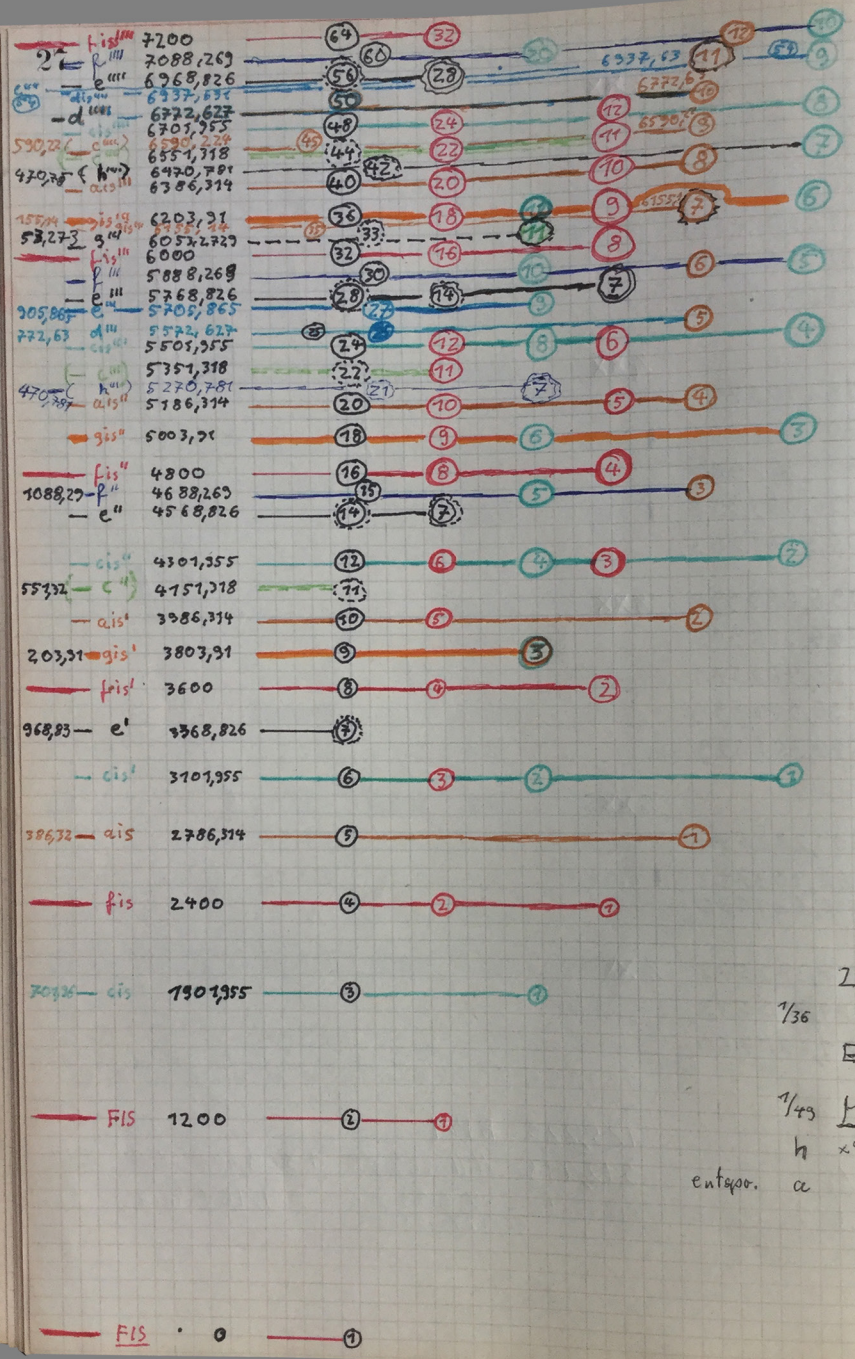 fis'''' 7200 64 32 12 10
27 f'''' 7088,269 60 30 6937,63 11 54 9
e'''' 6968,826 56 28
dis'''' 6937,631 6772,6 10
d'''' 6772,627 50 12
cis'''' 6701,955 48 24 8
590,22 ( c'''' ) 6590,224 45 11 6590, 9
6551,318 44 22
470,78 ( h''' ) 6470,781 42 10 8 7
ais''' 6386,314 40 20
155,14 gis''' 6203,91 36 18 9 6155,1 7 6
gis''' 6155,14 35
53,273 g''' 6053,2729 33 11
fis''' 6000 32 16 8
f''' 5888,269 30 10 6 5
e''' 5768,826 28 14 7
905,865 e''' 5705,865 27 9
772,63 d''' 5572,627 25 5
cis''' 5501,955 24 12 8 6 4
( c''' ) 5351,318 22 11
470,781 ( h'' ) 5270,781 21 7
ais'' 5186,314 20 10 5 4
gis'' 5003,91 18 9 6 3
fis'' 4800 16 8 4
1088,29 f'' 4688,269 15 5 3
e'' 4568,826 14 7
cis'' 4301,955 12 6 4 3 2
551,32 ( c'' ) 4151,318 11
ais' 3986,314 10 5 2
203,91 gis' 3803,91 9 3
fis' 3600 8 4 2
968,83 e' 3368,826 7
cis' 3101,955 6 3 2 1
386,32 ais 2786,314 5 1
fis 2400 4 2 1
701,96 cis 1901,955 3 1
1/36
FIS 1200 2 1
1/49
h
entspr. a
FIS 0 1